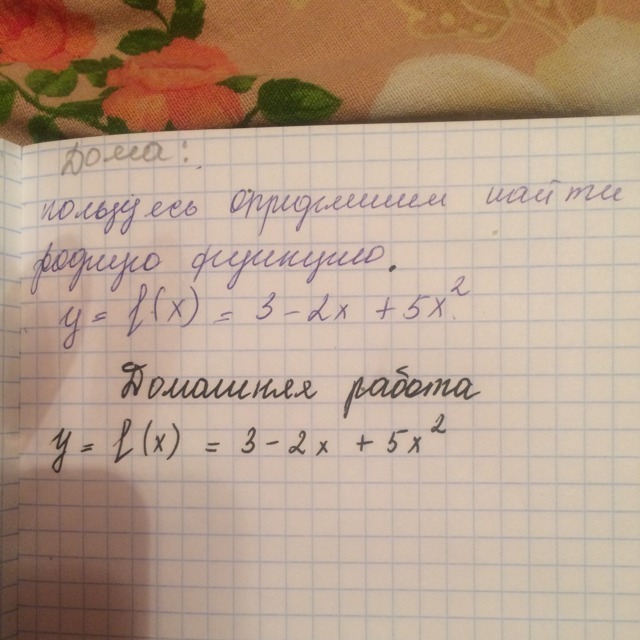 Дома:
пользуясь найти
родную функцию.
y = f(x) = 3 - 2x + 5x².
Домашняя работа
y = f(x) = 3 - 2x + 5x²